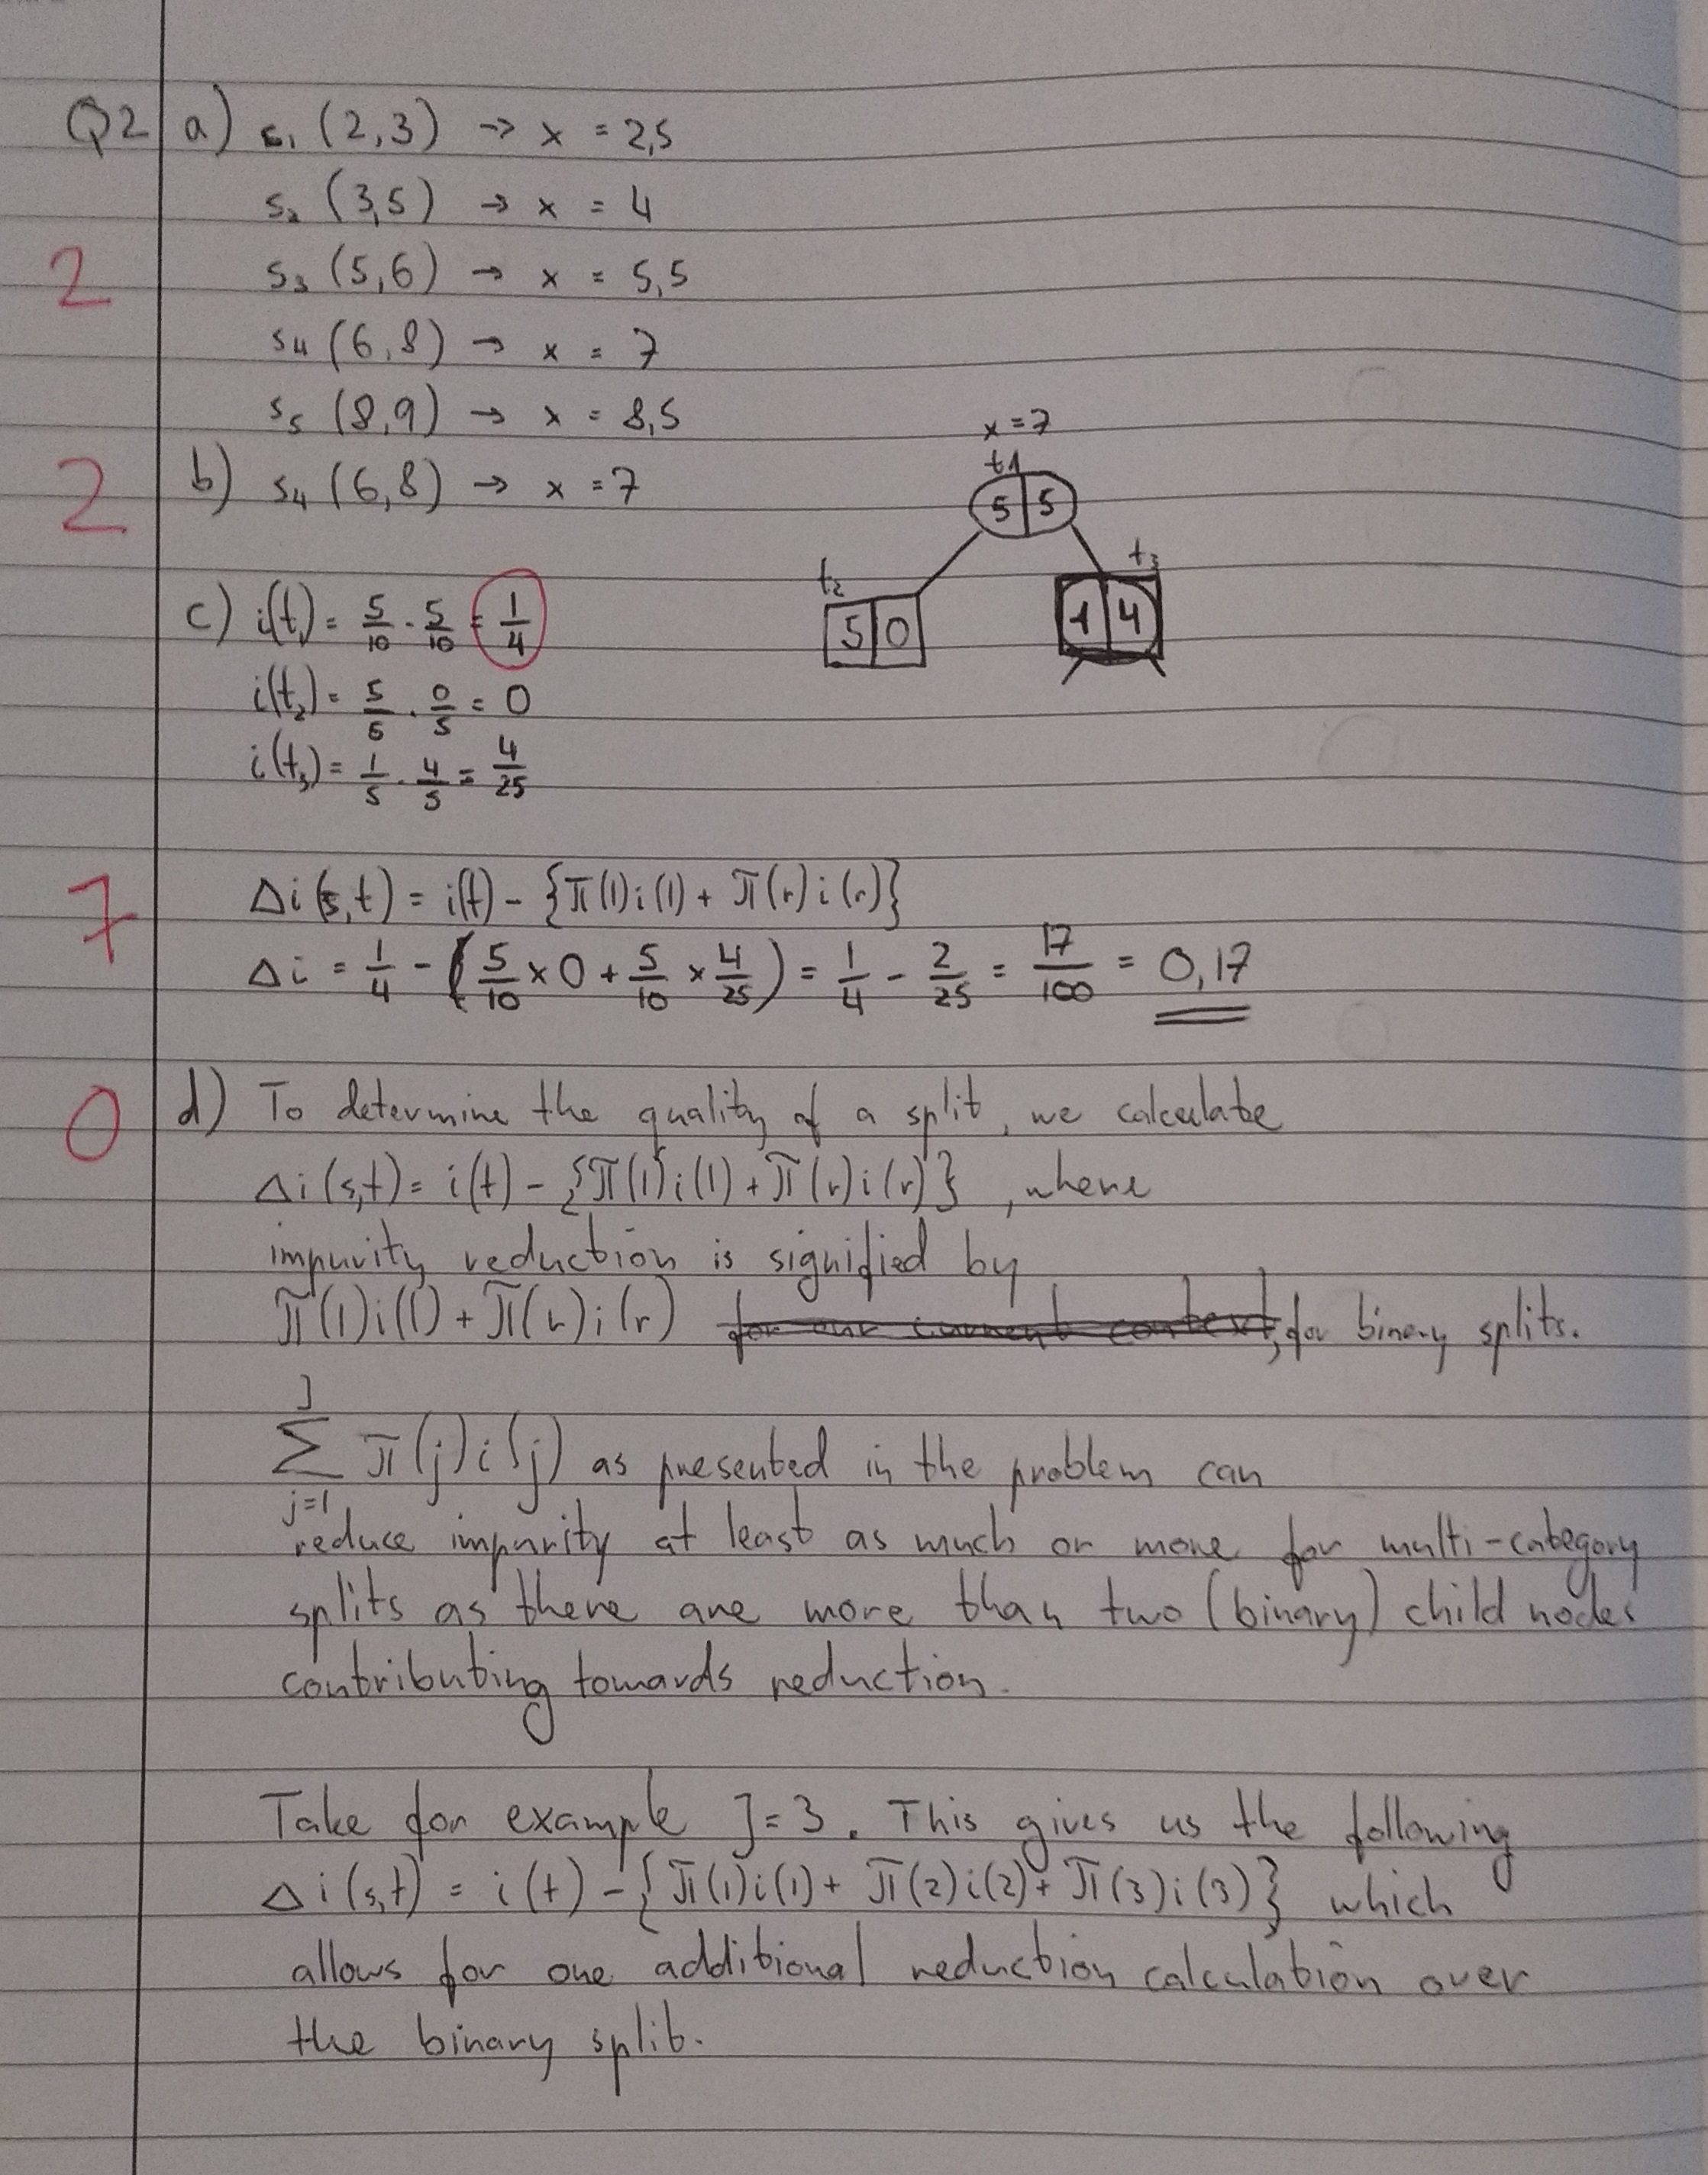 Q2 a) s₁ (2,3) → x = 2,5
s₂ (3,5) → x = 4
2 s₃ (5,6) → x = 5,5
s₄ (6,8) → x = 7
s₅ (8,9) → x = 8,5
x=7
t1
2 b) s₄ (6,8) → x = 7
5|5
t₂ t₃
c) i(t₁) = 5/10 · 5/10 = 1/4
5|0 1|4
i(t₂) = 5/5 · 0/5 = 0
i(t₃) = 1/5 · 4/5 = 4/25
7 Δi(s,t) = i(t) - {π(l)i(l) + π(r)i(r)}
Δi = 1/4 - (5/10 × 0 + 5/10 × 4/25) = 1/4 - 2/25 = 17/100 = 0,17
0 d) To determine the quality of a split, we calculate
Δi(s,t) = i(t) - {π(l)i(l) + π(r)i(r)}, where
impurity reduction is signified by
π(l)i(l) + π(r)i(r) for our current context, for binary splits.
J
∑ π(j)i(j) as presented in the problem can
j=1
reduce impurity at least as much or more for multi-category
splits as there are more than two (binary) child nodes
contributing towards reduction.
Take for example J=3. This gives us the following
Δi(s,t) = i(t) - {π(1)i(1) + π(2)i(2) + π(3)i(3)} which
allows for one additional reduction calculation over
the binary split.